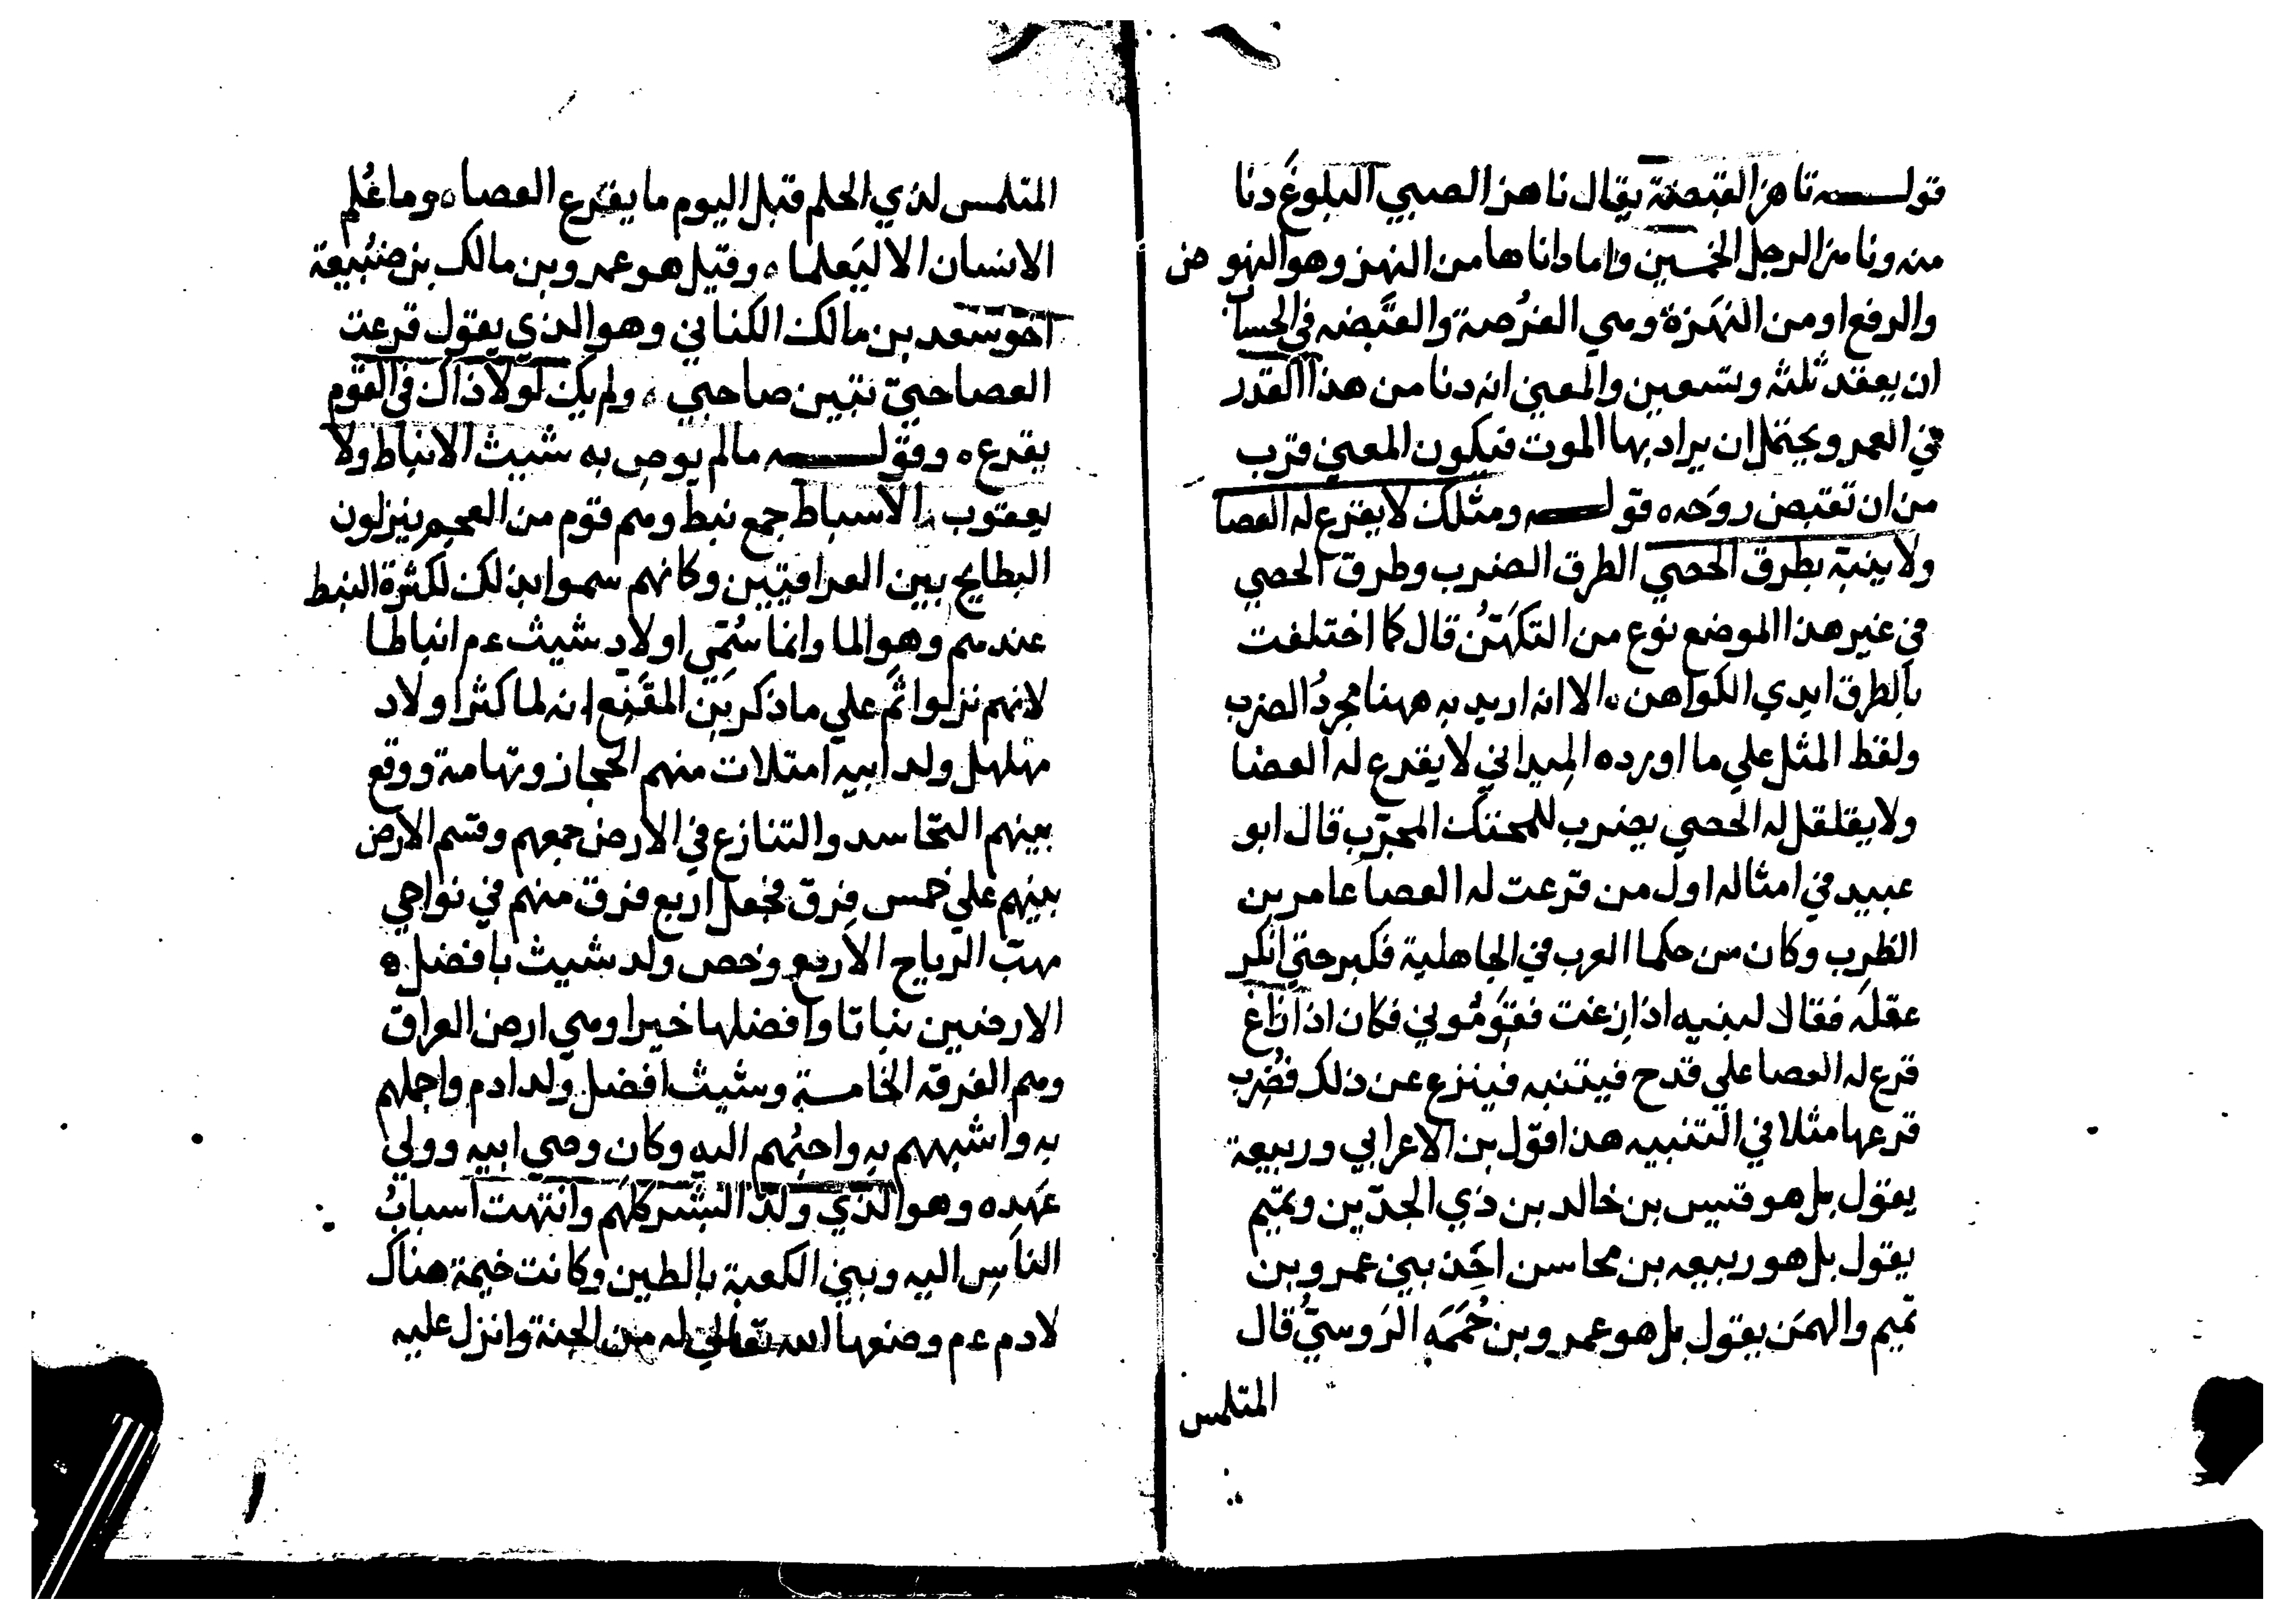 قولـــه ناهز القبضة يقال ناهز الصبي البلوغ دنا
منه وناهز الرجل الخمسين واما داناها من النهز وهو النهوض
والرفع او من النهزة وهي الفرصة والقبضه في الحساب
ان يعقد ثلثه وتسعين والمعني انه دنا من هذا القدر
في العمر ويحتمل ان يراد بها الموت فيكون المعني قرب
من ان تقبض روحه ه قولـــه ومثلك لا يقرع له العصا
ولا ينبه بطرق الحصي الطرق الضرب وطرق الحصي
في غير هذا الموضع نوع من التكهن قال كما اختلفت
بالطرق ايدي الكواهن ه الا انه اريد به ههنا مجرد الضرب
ولفظ المثل علي ما اورده الميداني لا يقرع له العضا
ولا يقلقل له الحصي يضرب للمحنك المجرب قال ابو
عبيد في امثاله اول من قرعت له العصا عامر بن
الظرب وكان من حكما العرب في الجاهلية فكبر حتي انكر
عقله فقال لبنيه اذا زغت فقوموني فكان اذا زاغ
قرع له العصا علي قدح فيتنبه فينزع عن ذلك فضرب
قرعها مثلا في التنبيه هذا قول بن الاعرابي وربيعة
يقول بل هو قيس بن خالد بن ذي الجدين وتميم
يقول بل هو ربيعه بن محاسن احد بني عمرو بن
تميم واليمن يقول بل هو عمرو بن حممه الروسي قال
المتلمس
المتلمس لذي الحلم قبل اليوم ما يقرع العصا ه وما علم
الانسان الا ليعلما ه وقيل هو عمرو بن مالك بن ضبيعة
اخو سعد بن مالك الكناني وهو الذي يقول قرعت
العصا حتي تبين صاحبي ه ولم يك لولا ذاك في القوم
يقرع ه وقولـــه مالم يوص به شيث الانباط ولا
يعقوب الاسباط جمع نبط وهم قوم من العجم ينزلون
البطايح بين العراقيين وكانهم سموا بذلك لكثرة النبط
عندهم وهو الما وانما سمي اولاد شيث ءم انباطا
لانهم نزلوا ثم علي ما ذكر بن المقفع انه لما كثر اولاد
مهلهل ولد ابيه امتلات منهم الحجاز وتهامة ووقع
بينهم التحاسد والتنازع في الارض جمعهم وقسم الارض
بينهم علي خمس فرق فجعل اربع فرق منهم في نواحي
مهب الرياح الاربع وخص ولد شيث بافضل ه
الارضين نباتا وافضلها خيرا وهي ارض العراق
وهم الفرقه الخامسة وشيث افضل ولد ادم واجملهم
به واشبههم به واحبهم اليه وكان وصي ابيه وولي
عهده وهو الذي ولد البشر كلهم وانتهت اسباب
الناس اليه وبني الكعبة بالطين وكانت خيمة هناك
لادم ءم وضعها الله تعالي له من الجنة وانزل عليه